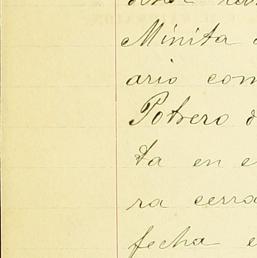 Minita
ario com
Potrero d
ta en e
ra cerra
fecha e